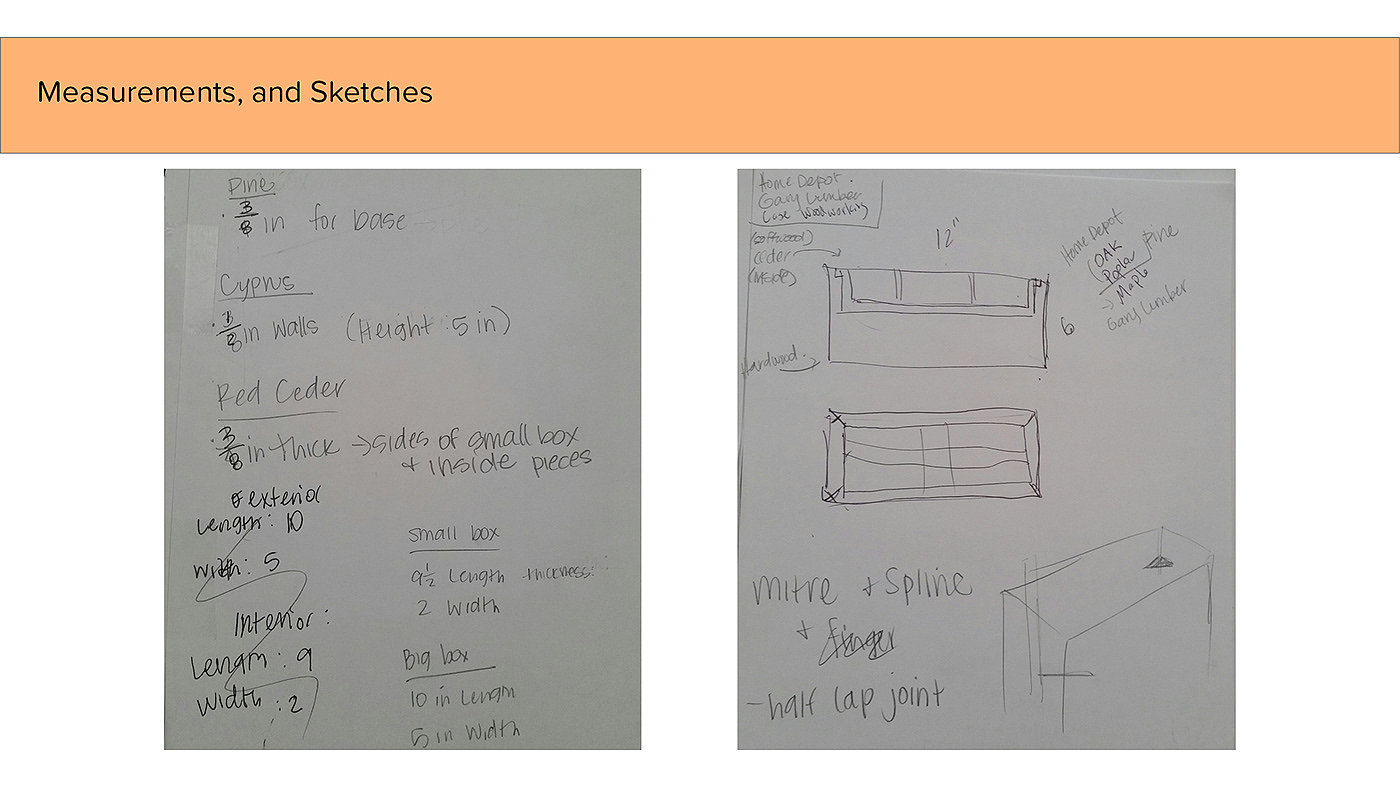 Measurements, and Sketches
Pine
· 3/8 in for base
Cyprus
in Walls (Height: 5 in)
Red Ceder
· 3/8 in thick → sides of small box
+ inside pieces
exterior
Length: 10
Width: 5
Interior:
Length: 9
Width: 2
small box
9 1/2 Length thickness:
2 Width
Big box
10 in Length
5 in Width
Home Depot.
Gary Lumber
Case Woodworking
(softwood)
ceder
(inside)
12"
Home Depot
(OAK
Poplar
Pine
→ Maple
Gary Lumber
6
Hardwood.
mitre + Spline
+ finger
- half lap joint